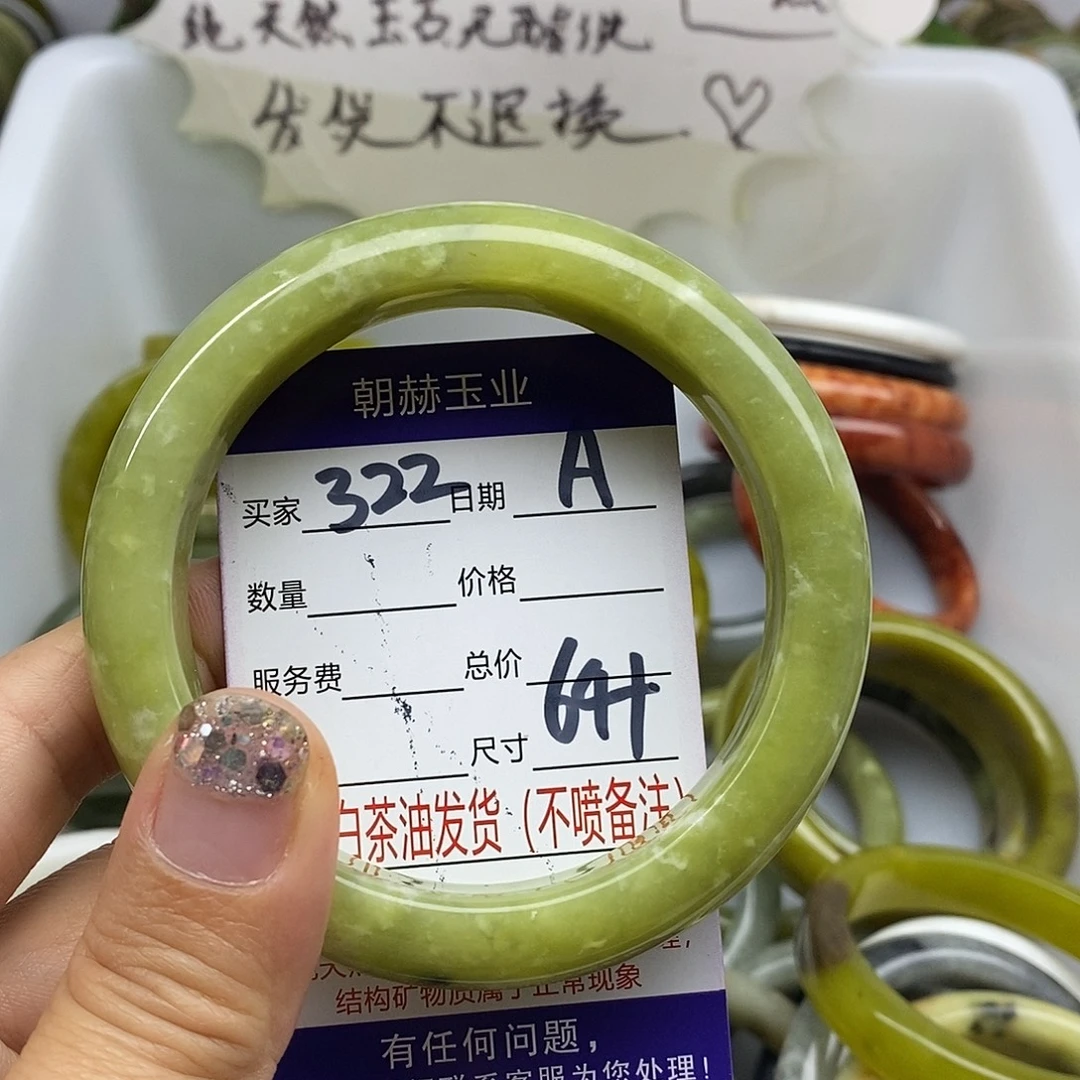 纯天然玉石无酸洗
售出不退换 ♡
朝赫玉业
买家 322 日期 A
数量 价格
服务费 总价
尺寸 64+
白茶油发货(不喷备注)
结构矿物质属于正常现象
有任何问题,
客服为您处理!